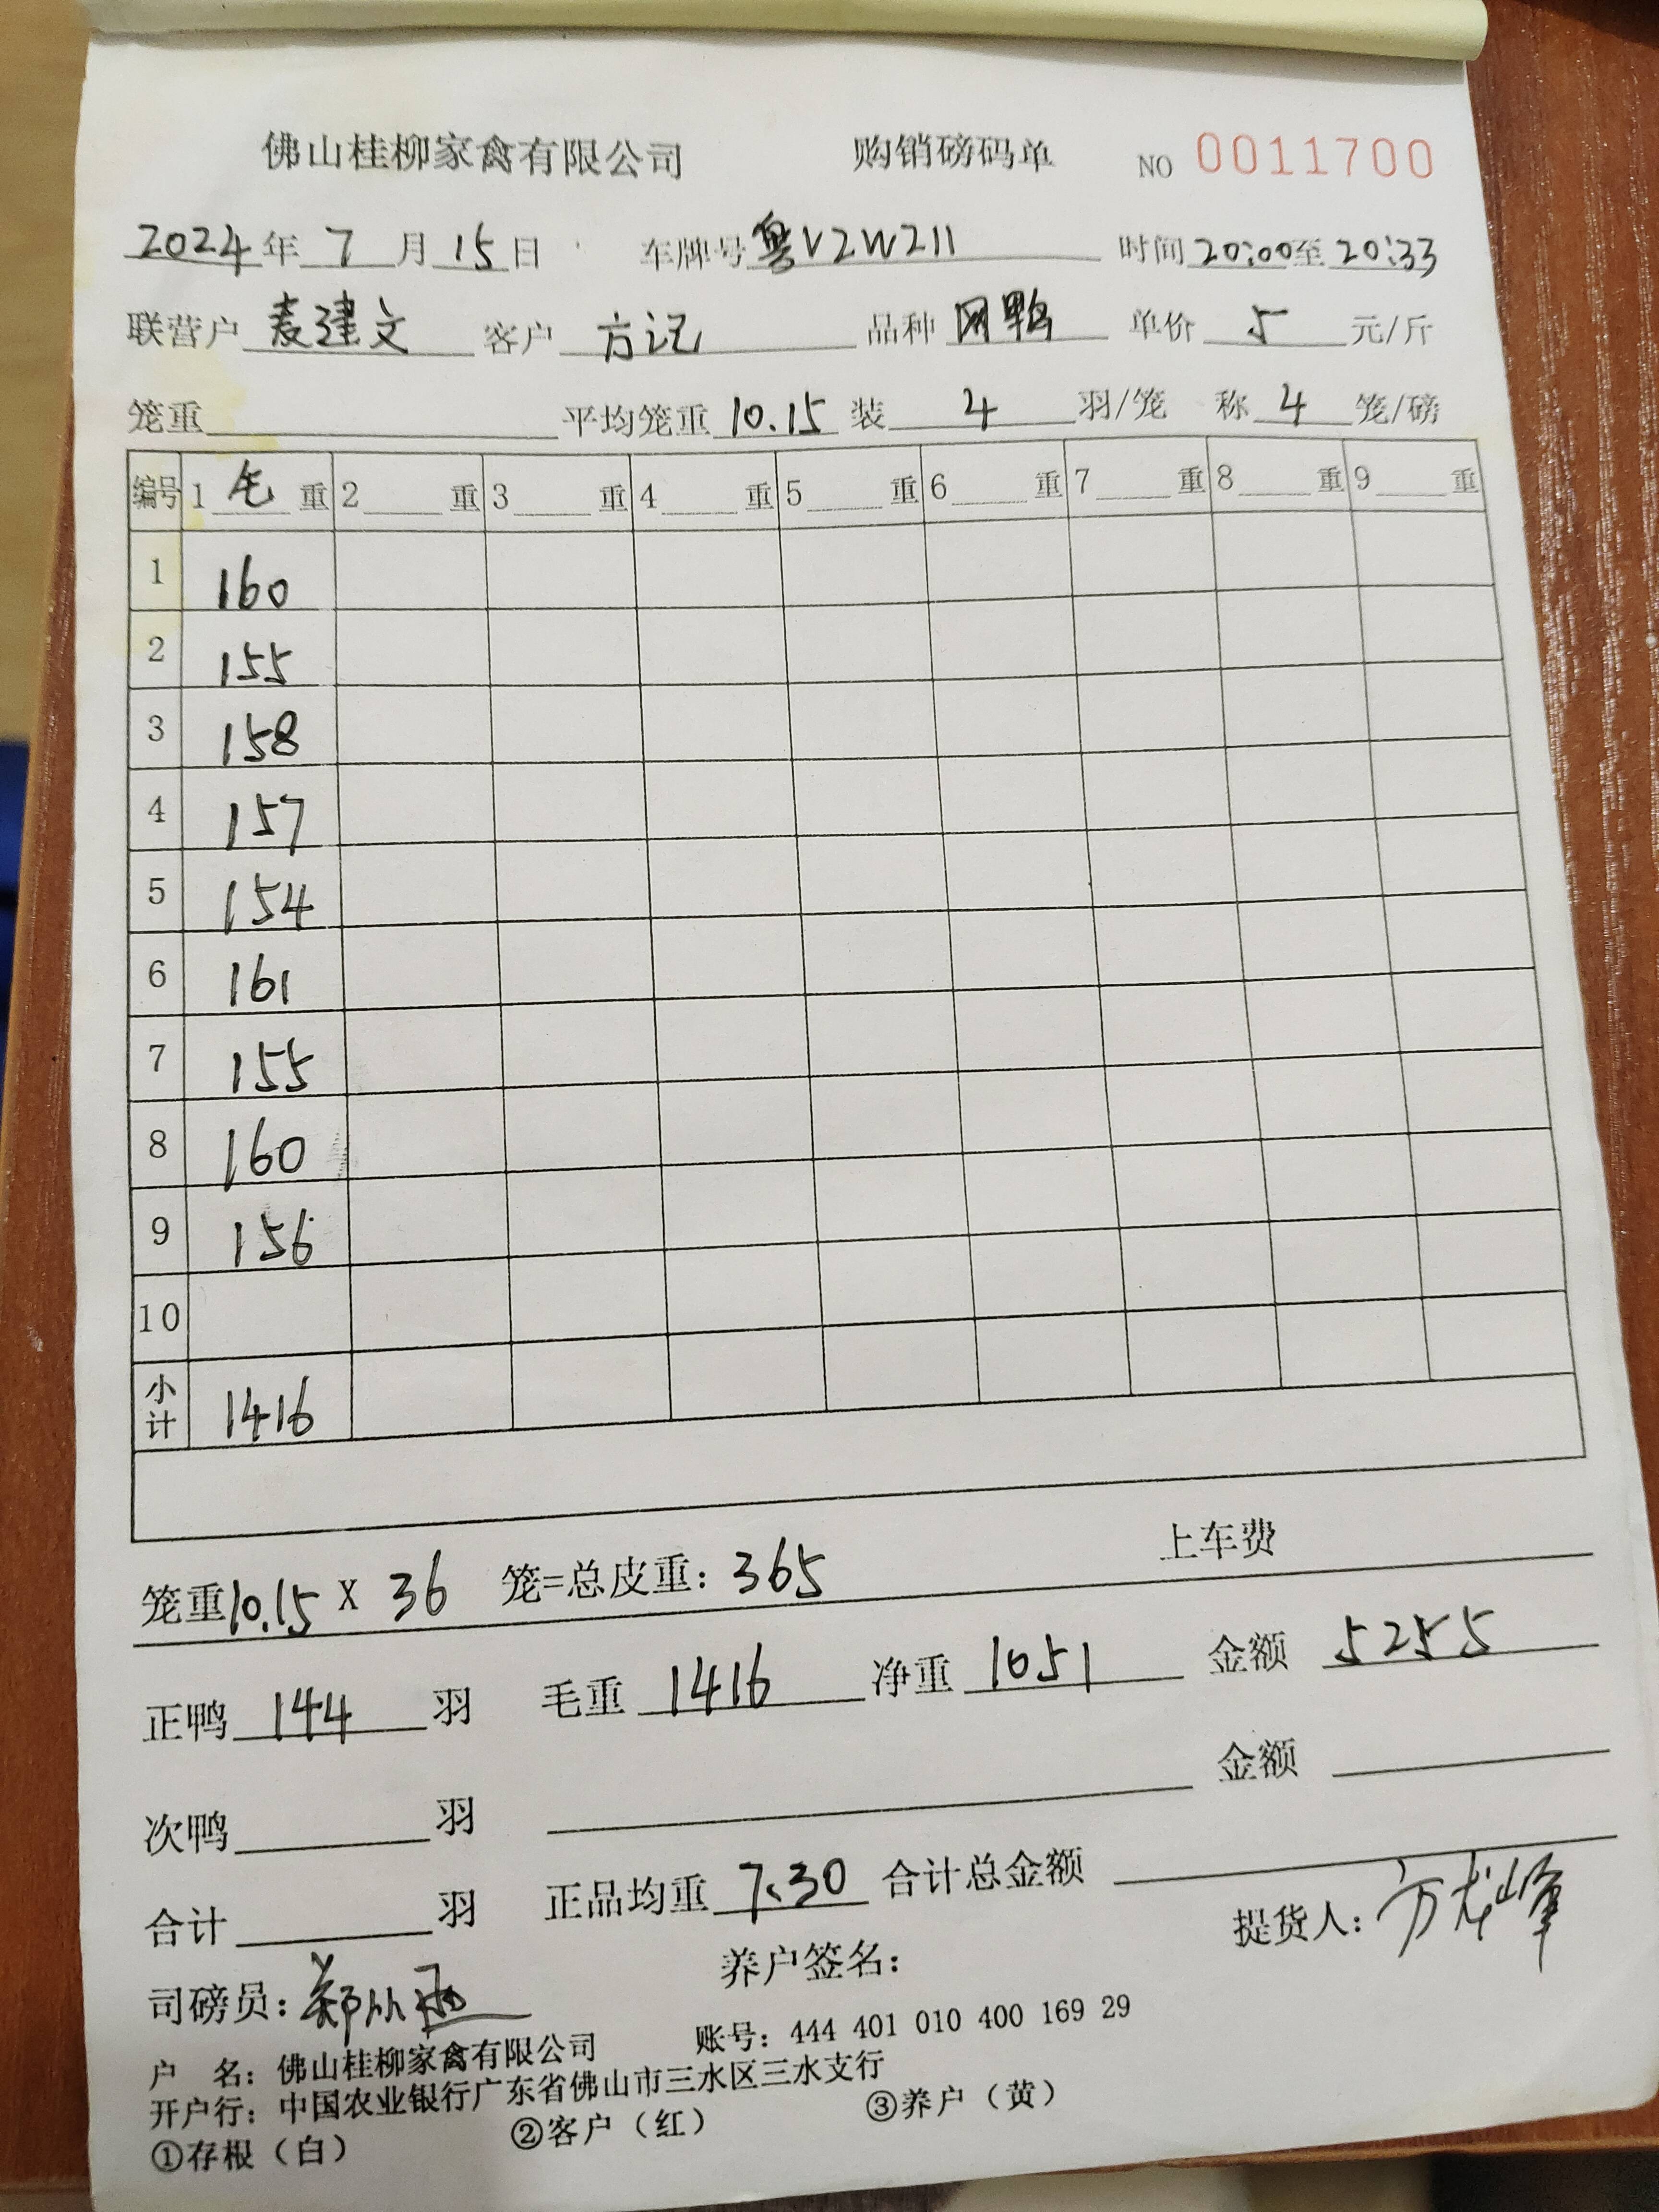 佛山桂柳家禽有限公司 购销磅码单 NO 0011700
2024年7月15日 车牌号粤V2W211 时间20:00至20:33
联营户 麦建文 客户 方记 品种 网鸭 单价 5 元/斤
笼重 平均笼重10.15 装 4 羽/笼 称 4 笼/磅
编号 1 毛 重 2 重 3 重 4 重 5 重 6 重 7 重 8 重 9 重
1 160
2 155
3 158
4 157
5 154
6 161
7 155
8 160
9 156
10
小计 1416
上车费
笼重10.15 X 36 笼=总皮重：365
正鸭 144 羽 毛重 1416 净重 1051 金额 5255
次鸭 羽 金额
合计 羽 正品均重 7.30 合计总金额
司磅员：郑 养户签名： 提货人：方龙峰
户 名：佛山桂柳家禽有限公司 账号：444 401 010 400 169 29
开户行：中国农业银行广东省佛山市三水区三水支行
①存根（白） ②客户（红） ③养户（黄）